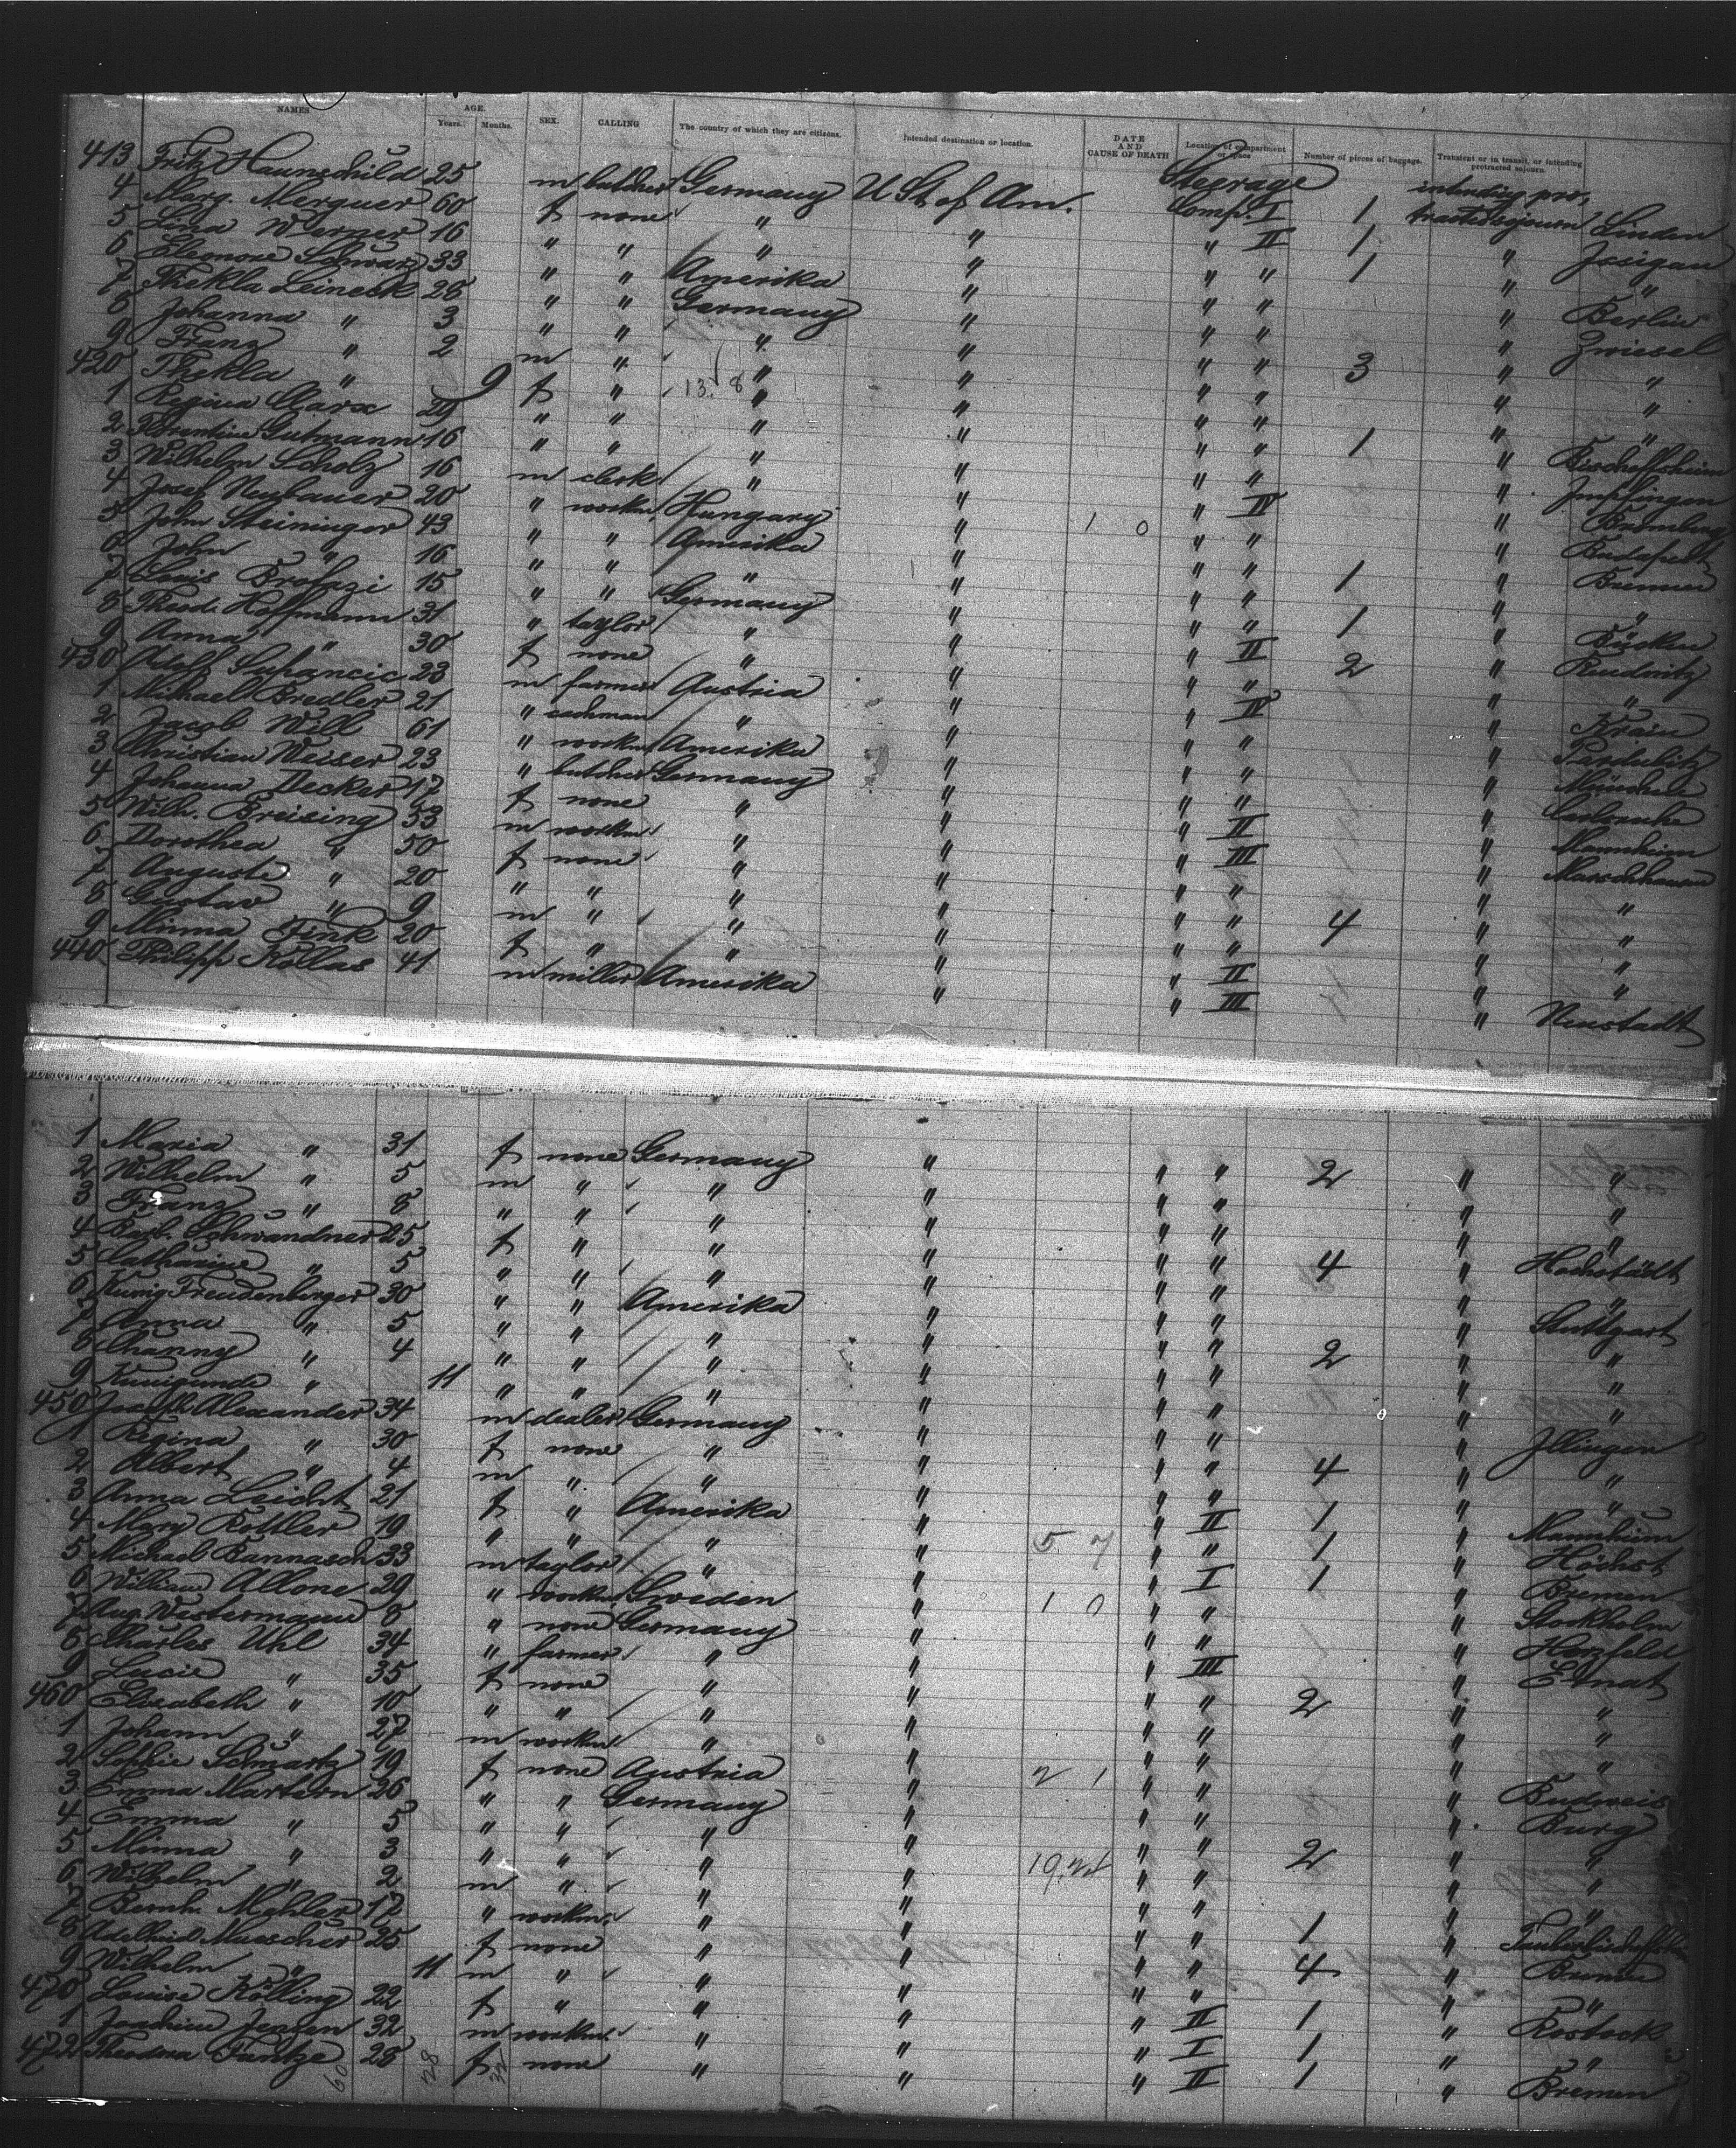 NAMES. AGE. Years. Months. SEX. CALLING The country of which they are citizens. Intended destination or location. DATE AND CAUSE OF DEATH Location of compartment or space Number of pieces of baggage. Transient or in transit, or intending protracted sojourn.
413 Fritz Haunschild 25 m butcher Germany U St. of Am. Steerage Comp. I 1 intending protracted sojourn Linden
4 Marg. Merguer 60 f none " " " II 1 " Josigau
5 Lina Werner 16 " " " " " " 1 " "
6 Eleonore Schwarz 33 " " Amerika " " " " Berlin
7 Thekla Leineck 28 " " Germany " " " " Zwiesel
8 Johanna " 3 " " " " " " 3 " "
9 Franz " 2 m " " " " " " "
420 Thekla " 9 f " 13/8 " " " " " "
1 Regina Marx 29 " " " " " " 1 " Bischoffsheim
2 Florentine Gutmann 16 " " " " " " " Impfingen
3 Wilhelm Scholz 16 m clerk " " " IV " Bromberg
4 Josef Neubauer 20 " workm. Hungary " 1 0 " " " Budapest
5 John Steininger 43 " " Amerika " " " 1 " Bremen
6 John " 16 " " " " " " " "
7 Louis Brofazi 15 " " Germany " " " 1 " Bücken
8 Theod. Hoffmann 31 " taylor " " " II 2 " Reudnitz
9 Anna " 30 f none " " " " " "
430 Adolf Supancic 23 m farmer Austria " " IV " Krain
1 Michael Bredler 21 " coachman " " " " " Pardubitz
2 Jacob Will 61 " workm. Amerika " " " " München
3 Christian Weiser 23 " butcher Germany " " " " Carlsruhe
4 Johanna Decker 17 f none " " " II " Mannheim
5 Wilh. Breising 53 m workm. " " " III " Marschhausen
6 Dorothea " 50 f none " " " " " "
7 Auguste " 20 " " " " " " 4 " "
8 Gustav " 9 m " " " " " " "
9 Minna Fink 20 f " " " " II " "
440 Philipp Kollas 41 m miller Amerika " " III " Neustadt
1 Maria " 31 f none Germany " " " 2 " "
2 Wilhelm " 5 m " " " " " " "
3 Franz " 8 " " " " " " " "
4 Barb. Schwandner 25 f " " " " " 4 " Hochstädt
5 Catharine " 5 " " " " " " " "
6 Kunig. Freudenberger 30 " " Amerika " " " " Stuttgart
7 Anna " 5 " " " " " " 2 " "
8 Channy " 4 " " " " " " " "
9 Kunigunde " 11 " " " " " " " "
450 Joseph Alexander 34 m dealer Germany " " " " Illingen
1 Regina " 30 f none " " " " 4 " "
2 Albert " 4 m " " " " " " "
3 Anna Leicht 21 f " Amerika " " II 1 " Mannheim
4 Mary Kottler 19 " " " " 5 7 " " 1 " Höchst
5 Michael Bannasch 33 m taylor " " " I 1 " Bremen
6 William Allone 29 " workm. Sweden " 1 0 " " " Stockholm
7 Aug. Westermann 8 " none Germany " " " " Herzfeld
8 Charles Uhl 34 " farmer " " " III " Etnat
9 Lucie " 35 f none " " " " 2 " "
460 Elisabeth " 10 " " " " " " " "
1 Johann " 27 m workm. " " " " " "
2 Sophie Schwartz 19 f none Austria " 2 1 " " " Budweis
3 Emma Martern 26 " " Germany " " " " Burg
4 Emma " 5 " " " " " " 2 " "
5 Minna " 3 " " " " 19.24 " " " "
6 Wilhelm " 2 m " " " " " " "
7 Bernh. Mehler 17 " workm. " " " " 1 " Tauberbischoffsheim
8 Adelheid Muescher 25 f none " " " " 4 " Bremen
9 Wilhelm " 11 m " " " " " " "
470 Louise Kölling 22 f " " " " II 1 " Rostock
1 Joachim Jensen 32 m workm. " " " I 1 " "
472 Theodora Funtze 28 f none " " " II 1 " Bremen
60 28 32